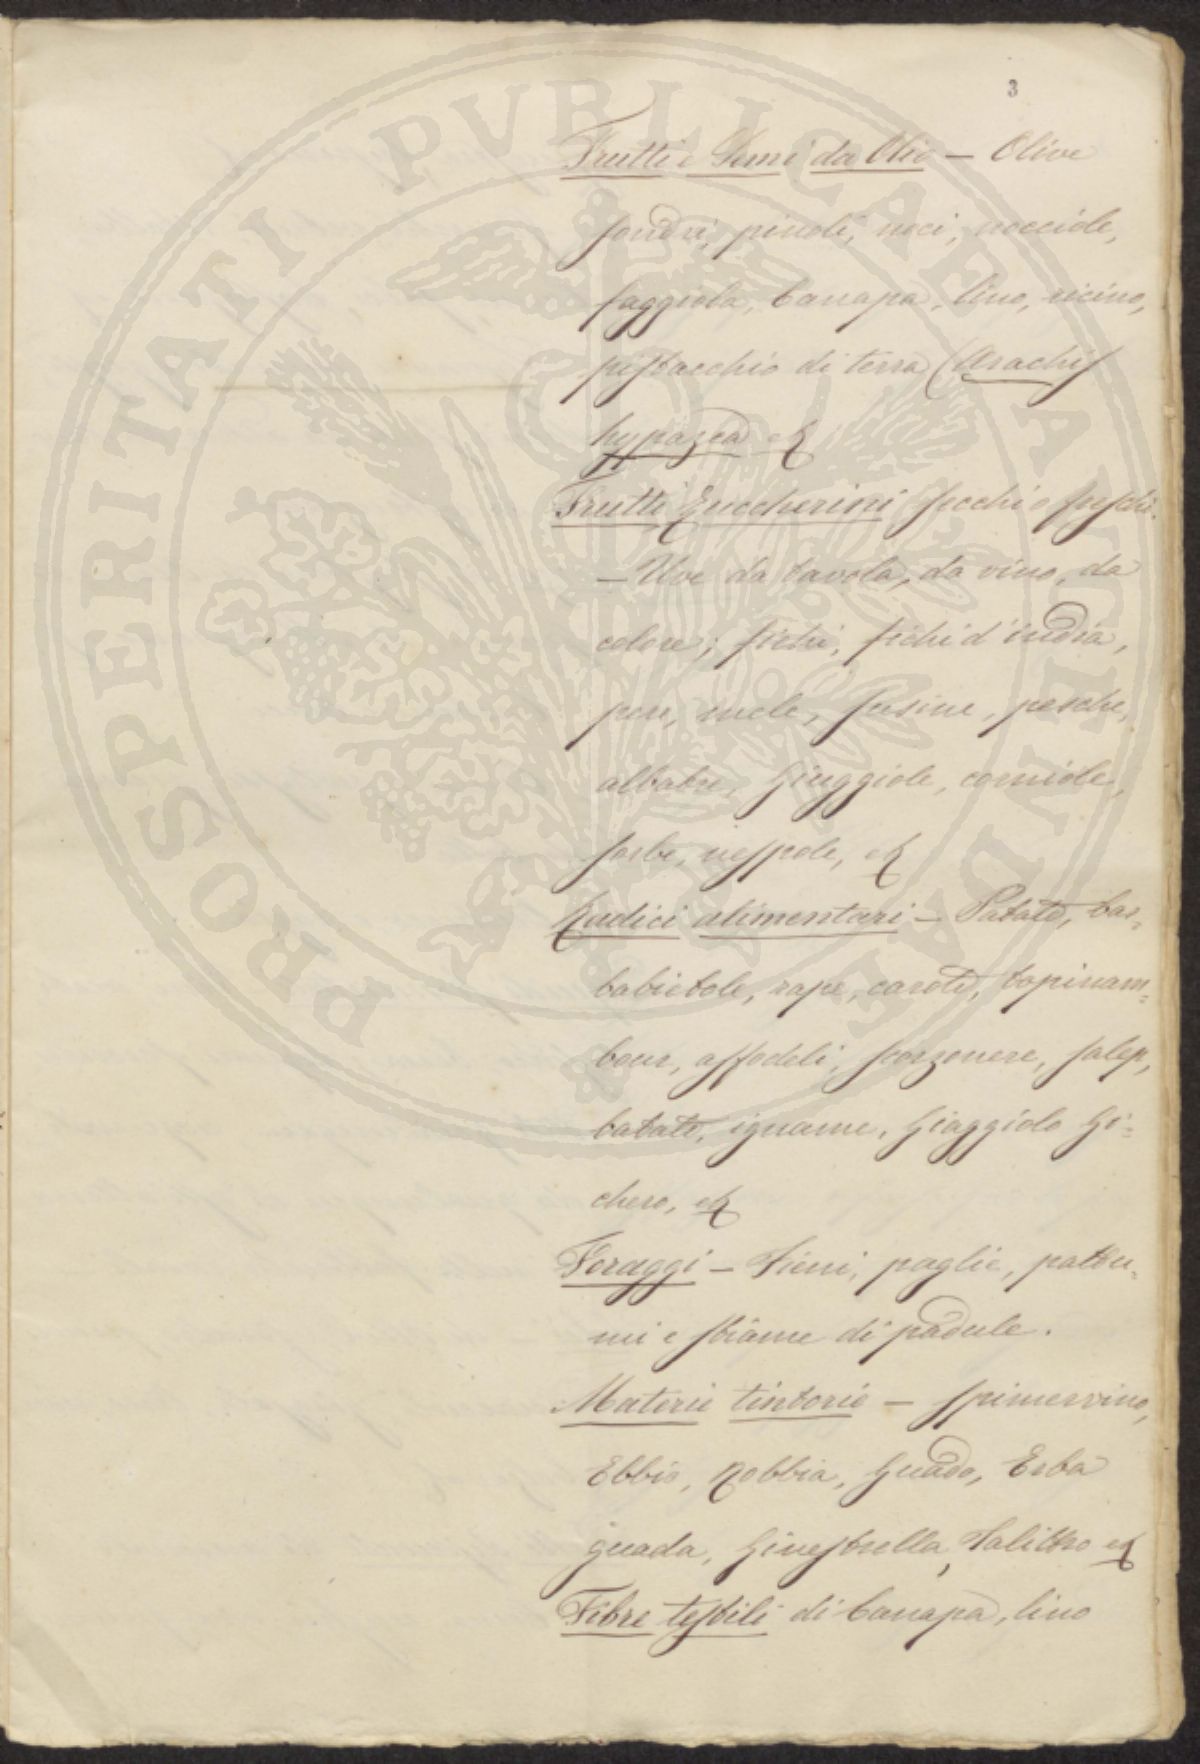 3
Frutti e Semi da Olio — Olive
pinoli, noci, nocciole,
faggiola, Canapa, lino, ricino,
pistacchio di terra (Arachis
hypogea etc
Frutti Zuccherini secchi o freschi.
— Uve da tavola, da vino, da
colore; fichi, fichi d'india,
pere, mele, susine, pesche,
albatre, Giuggiole, corniole,
sorbe, nespole, etc
Radici alimentari — Patate, bar=
babietole, rape, carote, topinam=
bour, affodeli, scorzonere, salep,
batate, igname, Giaggiolo Gi=
chero, etc
Foraggi — Fieni, paglie, pattu=
mi e strame di padule.
Materie tintorie — spincervino,
Ebbio, Robbia, Guado, Erba
guada, Ginestrella, Salitro etc
Fibre tessili di Canapa, lino
PROSPERITATI PUBLICAE AUGENDAE